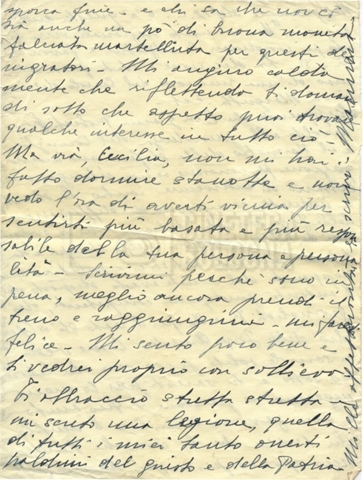 sporca fine - e chi sa che non ci
sia anche un pò di buona moneta
falsata martellata per questi d
migratori - Mi auguro calda
mente che riflettendo ti doman
di sotto che aspetto puoi trova
qualche interesse in tutto ciò -
Ma via, Cecilia, non mi hai
fatto dormire stanotte e non
vedo l'ora di averti vicina per
sentirti più basata e più respon
sabile della tua persona e persona
lità - Scrivimi perchè sono in
pena, meglio ancora prendi il
treno e raggiungimi - mi farai
felice - Mi sento poco bene e
ti vedrei proprio con sollievo
Ti abbraccio stretta stretta -
mi sento una legione, quella
di tutti i miei tanto onesti
paladini del giusto e della Patria